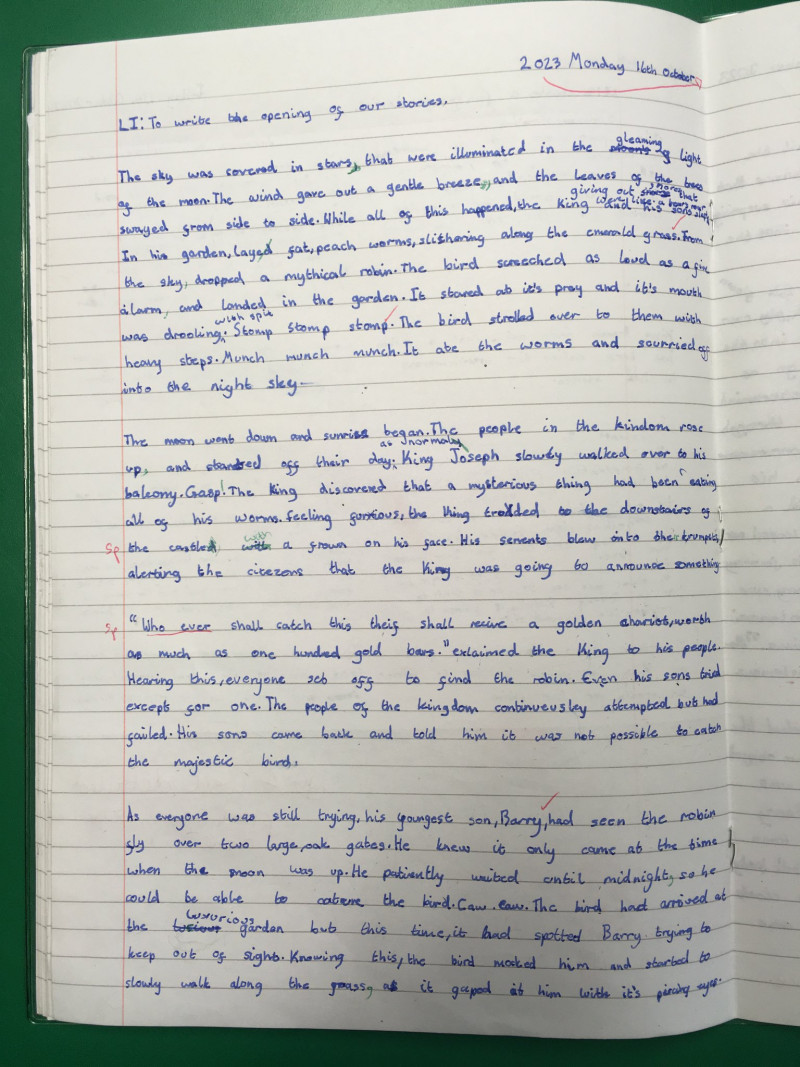 2023 Monday 16th October
LI: To write the opening of our stories.
gleaming
The sky was covered in stars, that were illuminated in the light
of the moon. The wind gave out a gentle breeze, and the leaves of the trees that
giving out snores that
swayed from side to side. While all of this happened, the King and his sons slept
were like a bears roar
In his garden, layed fat, peach worms, slithering along the emerald grass. From
the sky, dropped a mythical robin. The bird screeched as loud as a fire
alarm, and landed in the garden. It stared at it's prey and it's mouth
with spit
was drooling. Stomp Stomp stomp. The bird strolled over to them with
heavy steps. Munch munch munch. It ate the worms and scurried off
into the night sky.
The moon went down and sunrise began. The people in the kindom rose
as normaly
up, and started off their day; King Joseph slowly walked over to his
balcony. Gasp! The King discovered that a mysterious thing had been eating
all of his worms. feeling furious, the King trodded to the downstairs of
with
Sp the castle, a frown on his face. His servents blew onto their trumpets,
alerting the citezens that the King was going to announce something
Sp "Who ever shall catch this theif shall recive a golden chariot, worth
as much as one hundred gold bars." exlaimed the King to his people.
Hearing this, everyone set off to find the robin. Even his sons tried
except for one. The people of the kingdom continuevsley attempted but had
failed. His sons came back and told him it was not possible to catch
the majestic bird.
As everyone was still trying, his youngest son, Barry, had seen the robin
fly over two large, oak gates. He knew it only came at the time
when the moon was up. He patiently waited until midnight, so he
could be able to cature the bird. Caw. caw. The bird had arrived at
luxurious
the garden but this time, it had spotted Barry trying to
keep out of sight. Knowing this, the bird mocked him and started to
slowly walk along the grass, as it gaped at him with it's piercing eyes.